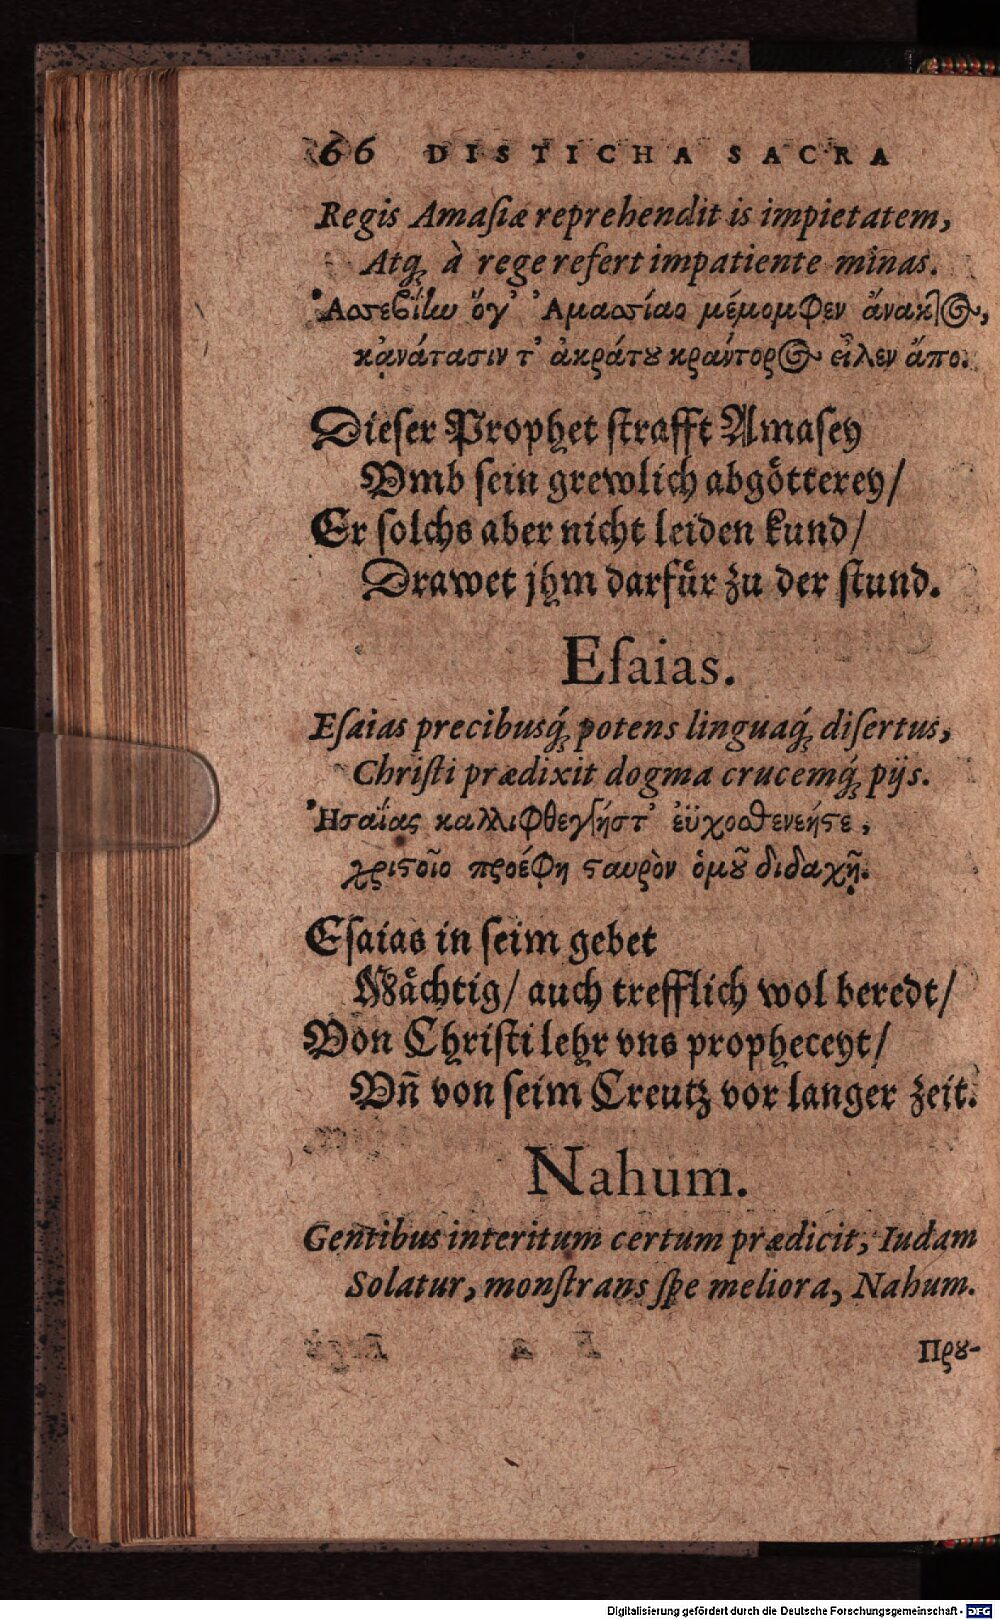 66 DISTICHA SACRA
Regis Amaſiæ reprehendit is impietatem,
Atq; à rege refert impatiente minas.
ὅγ' Ἀμασίαο μέμομφεν ἄνακτος,
τ' ἀκράτου κράντορος εἷλεν ἄπο.
Dieſer Prophet ſtrafft Amaſey
Vmb ſein grewlich abgötterey/
Er ſolchs aber nicht leiden kund/
Drawet jhm darfür zu der ſtund.
Eſaias.
Eſaias precibusq́; potens linguaq́; diſertus,
Chriſti prædixit dogma crucemq́; pijs.
Ἡσαΐας
χριστοῖο προέφη σταυρὸν ὁμοῦ διδαχῇ.
Eſaias in ſeim gebet
Mächtig/ auch trefflich wol beredt/
Von Chriſti lehr vns propheceyt/
Vñ von ſeim Creutz vor langer zeit.
Nahum.
Gentibus interitum certum prædicit, Iudam
Solatur, monſtrans ſpe meliora, Nahum.
Πρου-
Digitalisierung gefördert durch die Deutsche Forschungsgemeinschaft - DFG